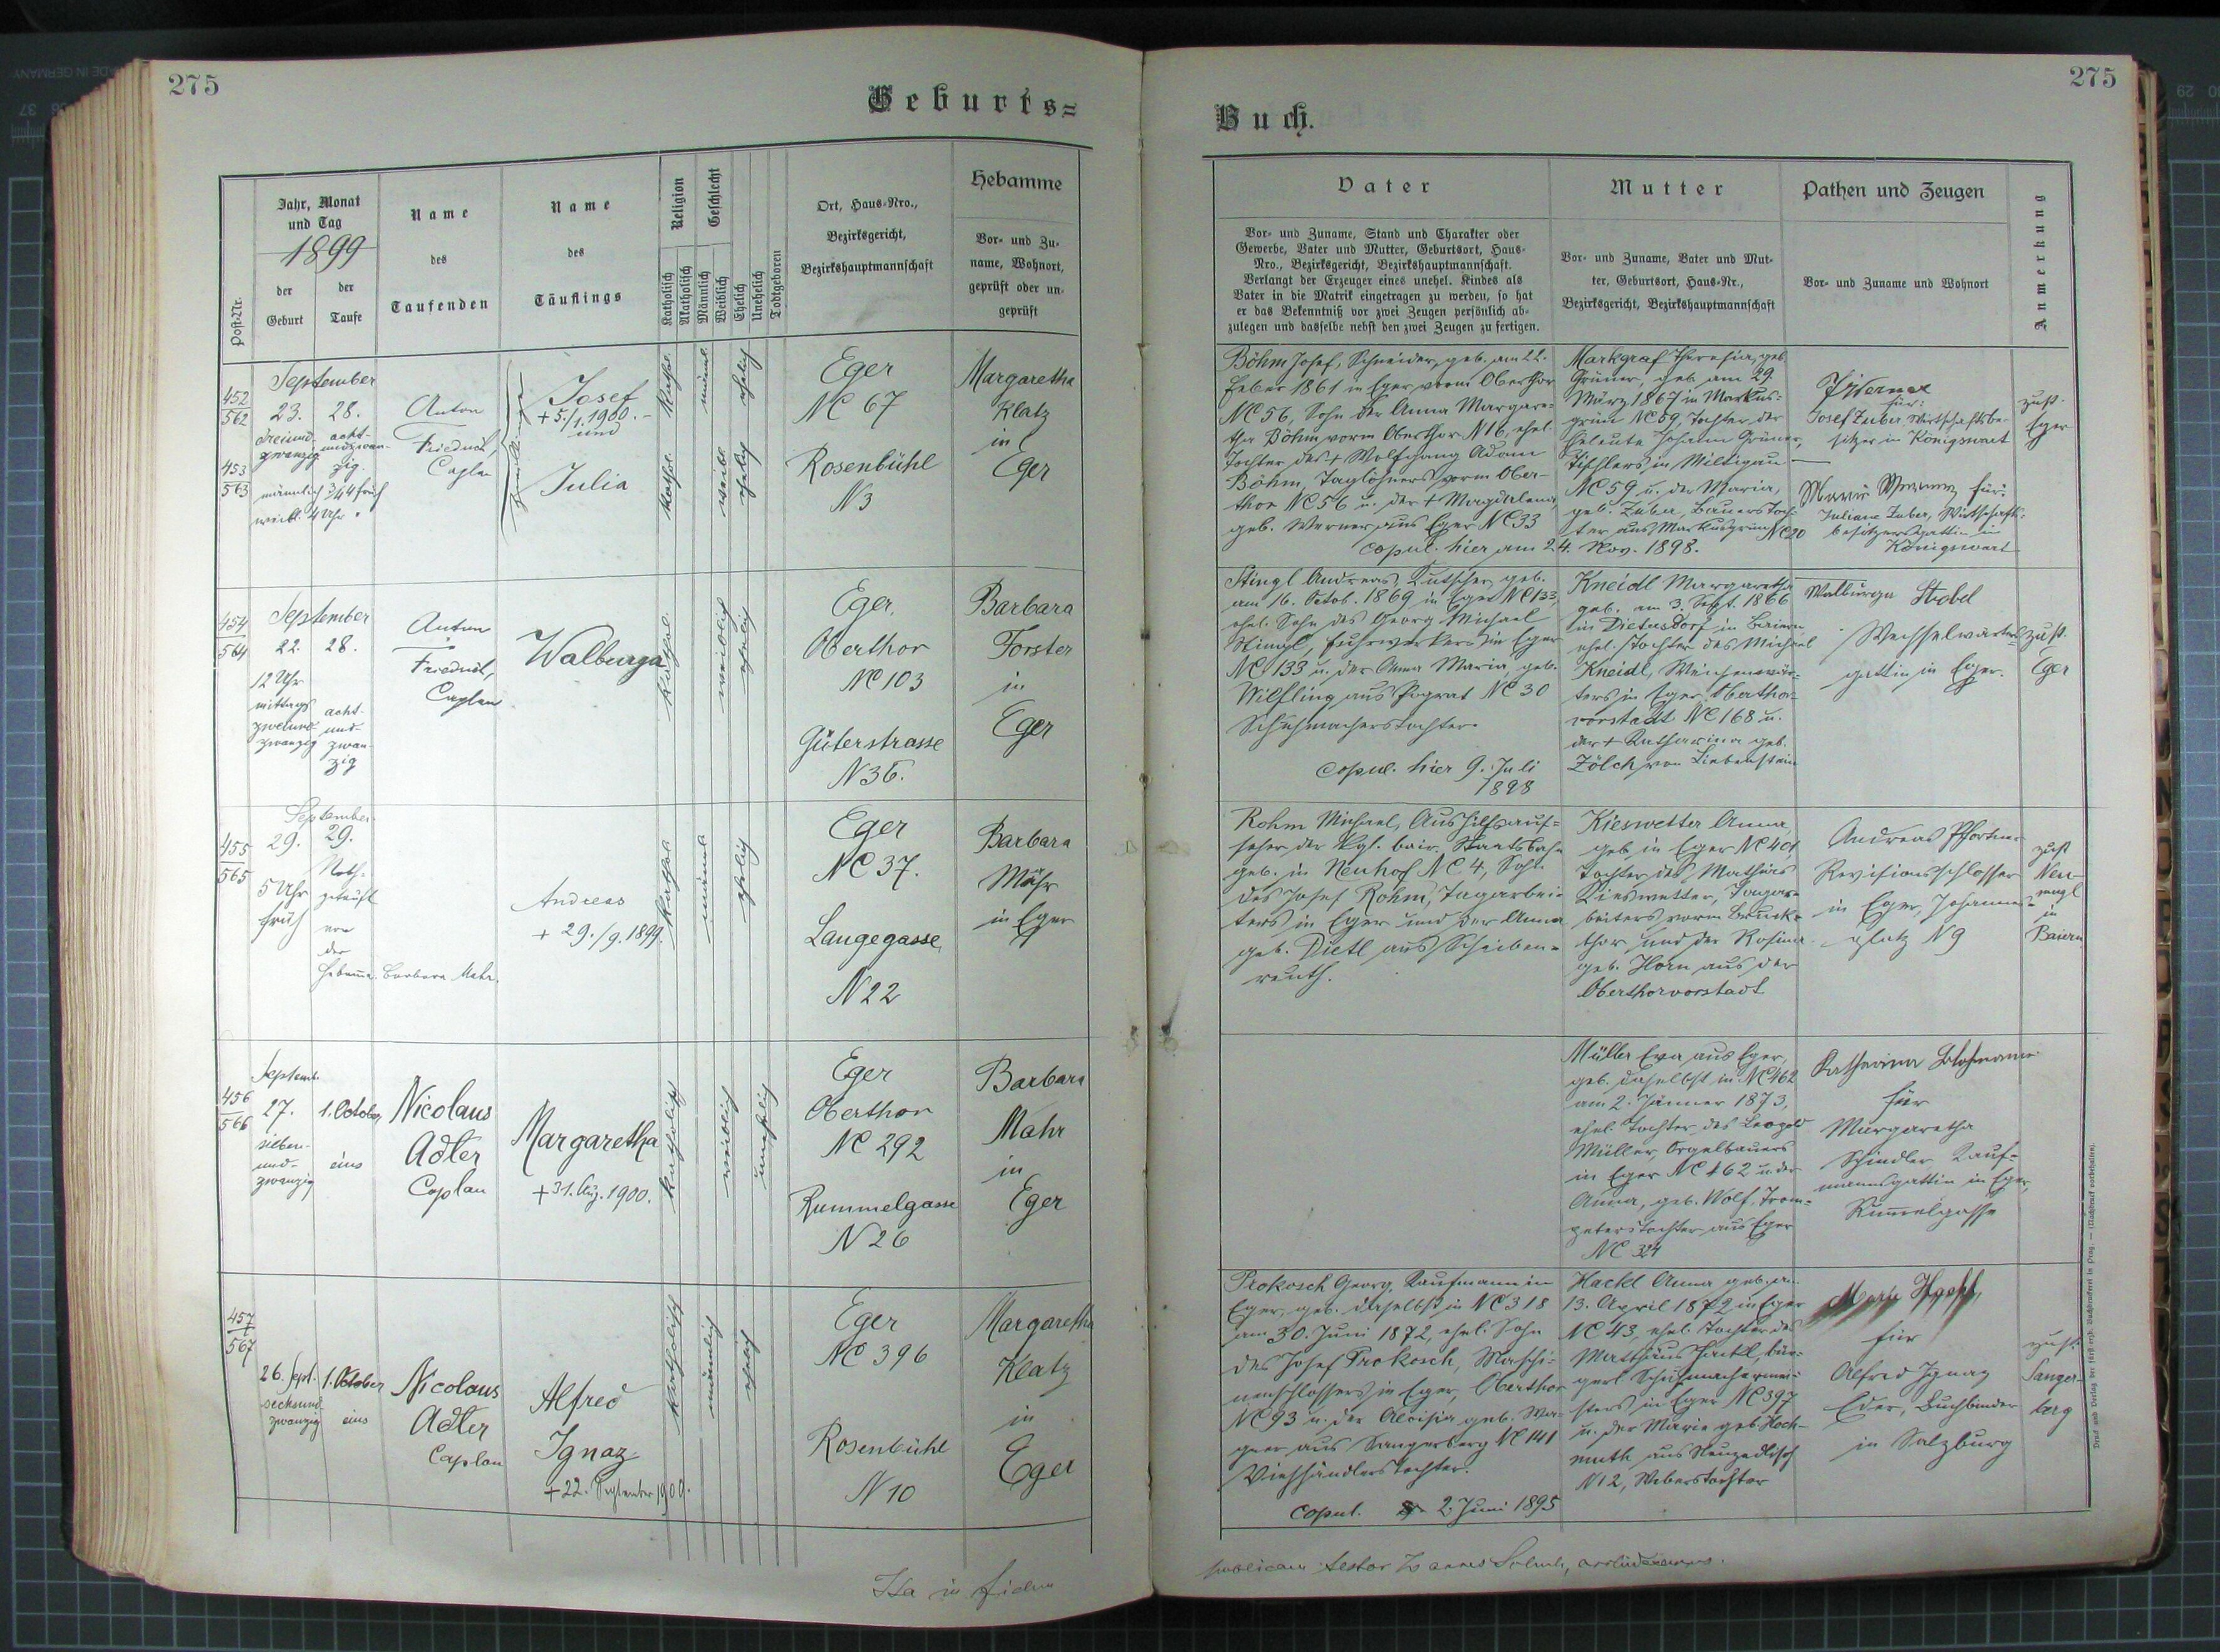 275
Geburts=
Jahr, Monat
und Tag
1899
der
Geburt
der
Taufe
Post-Nr.
Name
des
Taufenden
Name
des
Täuflings
Religion
Katholisch
Akatholisch
Geschlecht
Männlich
Weiblich
Ehelich
Unehelich
Todtgeboren
Ort, Haus-Nro.,
Bezirksgericht,
Bezirkshauptmannschaft
Hebamme
Vor- und Zu-
name, Wohnort,
geprüft oder un-
geprüft
452
562
453
563
September
23. 28.
dreiund- acht-
zwanzig undzwan-
zig
männlich 3/44 früh
weibl. 4 Uhr
Anton
Friedrich,
Caplan
Josef
+ 5/1.1900.-
und
Julia
Kathol.
männl.
ehelich
Kathol.
weibl.
ehelich
Eger
NC 67
Rosenbühl
N3
Margaretha
Klatz
in
Eger
454
564
September
22. 28.
12 Uhr
mittags
zweiund- acht-
zwanzig und-
zwan-
zig
Anton
Friedrich,
Caplan
Walburga
Kathol.
weiblich
ehelich
Eger,
Oberthor
NC 103
Güterstrasse
N36.
Barbara
Forster
in
Eger
455
565
September
29. 29.
5 Uhr
früh
Noth-
getauft
von
der
Hebamme Barbara Mahr.
Andreas
+ 29./9.1899.
Kathol.
männl.
ehelich
Eger
NC 37.
Langegasse,
N22
Barbara
Mahr
in Eger
456
566
Septemb.
27. 1. October
sieben-
und-
zwanzig
eins
Nicolaus
Adler
Caplan
Margaretha
+ 31. Aug. 1900.
Katholisch
weiblich
unehelich
Eger
Oberthor
NC 292
Rummelgasse
N26
Barbara
Mahr
in
Eger
457
567
26. Sept. 1. October
sechsund-
zwanzig eins
Nicolaus
Adler
Caplan
Alfred
Ignaz
+ 22. September 1900.
Katholisch
männlich
ehelich
Eger
NC 396
Rosenbühl
N10
Margaretha
Klatz
in
Eger
Ita in fidem
275
Buch.
Vater
Vor- und Zuname, Stand und Charakter oder
Gewerbe, Vater und Mutter, Geburtsort, Haus-
Nro., Bezirksgericht, Bezirkshauptmannschaft.
Verlangt der Erzeuger eines unehel. Kindes als
Vater in die Matrik eingetragen zu werden, so hat
er das Bekenntniß vor zwei Zeugen persönlich ab-
zulegen und dasselbe nebst den zwei Zeugen zu fertigen.
Mutter
Vor- und Zuname, Vater und Mut-
ter, Geburtsort, Haus-Nr.,
Bezirksgericht, Bezirkshauptmannschaft
Pathen und Zeugen
Vor- und Zuname und Wohnort
Anmerkung
Böhm Josef, Schneider, geb. am 22.
Feber 1861 in Eger vorm Oberthor
NC 56, Sohn der Anna Margare-
tha Böhm vorm Oberthor N16, ehel.
Tochter des + Wolfgang Adam
Böhm, Taglöhners vorm Ober-
thor NC 56 u. der + Magdalena,
geb. Werner aus Eger NC 33
copul. hier am 24. Nov. 1898.
Markgraf Theresia, geb.
Grüner, geb. am 29.
März 1867 in Markus-
grün NC 59, Tochter der
Eheleute Johann Grüner,
Tischlers in Miltigau
NC 59 u. der Maria,
geb. Zuber, Bauerstoch-
ter aus Markusgrün NC 20
für:
Josef Zuber, Wirtschaftsbe-
sitzer in Königswart
für:
Juliane Zuber, Wirtschafts-
besitzersgattin in
Königswart
zust.
Eger
Stingl Andreas, Kutscher, geb.
am 16. Octob. 1869 in Eger NC 133,
ehel. Sohn des Georg Michael
Stingl, Fuhrwerkers in Eger
NC 133 u. der Anna Maria, geb.
Wilfling aus Pograt NC 30
Schuhmacherstochter.
copul. hier 9. Juli
1898
Kneidl Margaretha
geb. am 3. Sept. 1866
in Dietersdorf in Baiern
ehel. Tochter des Michael
Kneidl, Weichenwär-
ters in Eger, Oberthor-
vorstadt NC 168 u.
der + Katharina geb.
Zölch von Liebenstein
Walburga Strobel
Wechselwärters-
gattin in Eger.
zust.
Eger
Rohm Michael, Aushilfsauf-
seher der Kgl. bair. Staatsbahn
geb. in Neuhof NC 4, Sohn
des Josef Rohm, Tagarbei-
ters in Eger und der Anna
geb. Dietl aus Scheiben-
reuth.
Kieswetter Anna,
geb. in Eger NC 401
Tochter des Mathias
Kieswetter, Tagar-
beiters vorm Bruck-
thor und der Rosina
geb. Horn aus der
Oberthorvorstadt
Andreas Pförtner
Revisionsschlosser
in Eger, Johannes-
platz N9
zust.
in
Baiern
Müller Eva aus Eger,
geb. daselbst in NC 462
am 2. Jänner 1873,
ehel. Tochter des Leopold
Müller, Orgelbauers
in Eger NC 462 u. der
Anna, geb. Wolf, Trom-
peterstochter aus Eger
NC 324
Katharina
für
Margaretha
Schindler, Kauf-
mannsgattin in Eger,
Rummelgasse
Prokosch Georg, Kaufmann in
Eger, geb. daselbst in NC 318
am 30. Juni 1872, ehel. Sohn
des Josef Prokosch, Maschi-
nenschlossers in Eger, Oberthor
NC 93 u. der Aloisia geb. Wa-
gner aus Sangerberg NC 141
Viehhändlerstochter.
copul. 2. Juni 1895
Hackl Anna geb. am
13. April 1872 in Eger
NC 43, ehel. Tochter des
Matthäus Hackl, bür-
gerl. Schuhmachermei-
sters in Eger NC 397
u. der Marie geb. Hoch-
muth aus Neuzedlisch
N12, Weberstochter
für
Alfred Ignaz
Eder, Buchbinder
in Salzburg
zust.
Sanger-
berg
Druck und Verlag der fürst-erzb. Buchdruckerei in Prag. — (Nachdruck vorbehalten).
testor